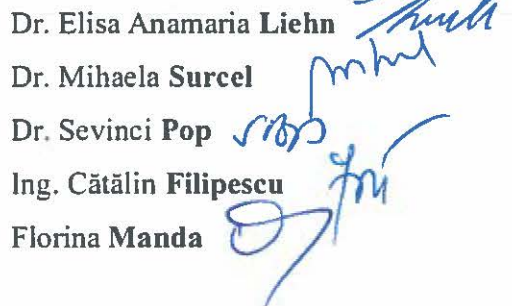 Dr. Elisa Anamaria Liehn
Dr. Mihaela Surcel
Dr. Sevinci Pop
Ing. Cătălin Filipescu
Florina Manda